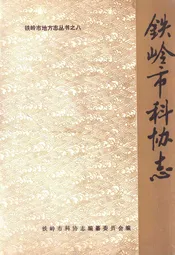 铁岭市地方志丛书之八
铁岭市科协志
铁岭市科协志编纂委员会编